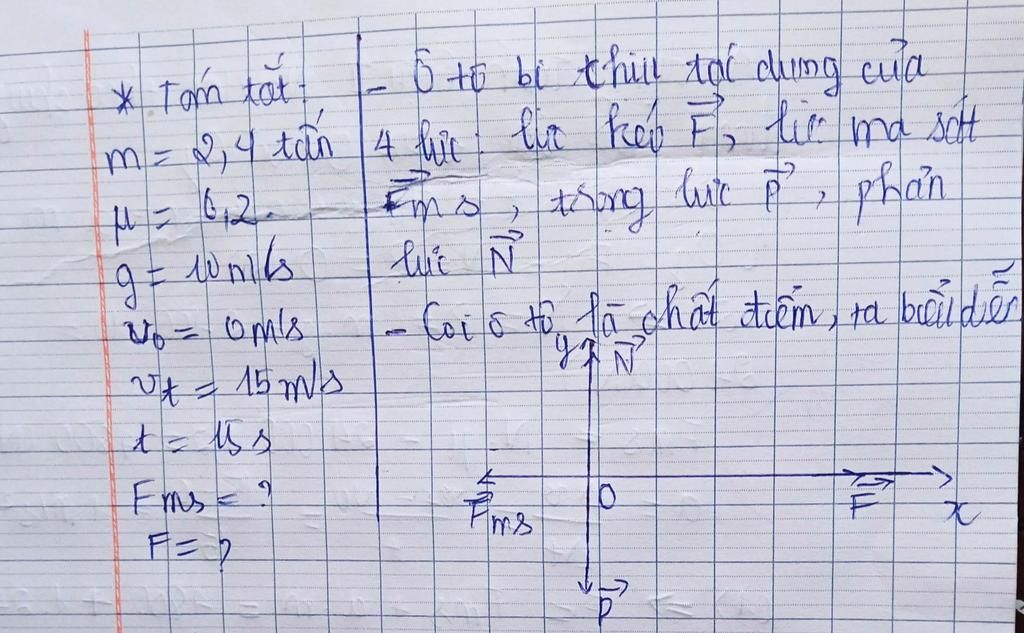 * Tóm tắt:
m = 2,4 tấn
μ = 0,2.
g = 10 m/s
v₀ = 0 m/s
vt = 15 m/s
t = 15 s
Fms = ?
F = ?
- Ô tô bị chịu tác dụng của
4 lực: lực kéo F⃗, lực ma sát
F⃗ms, trọng lực P⃗, phản
lực N⃗
- Coi ô tô là chất điểm, ta biểu diễn
y N⃗
F⃗ms O F⃗ x
P⃗